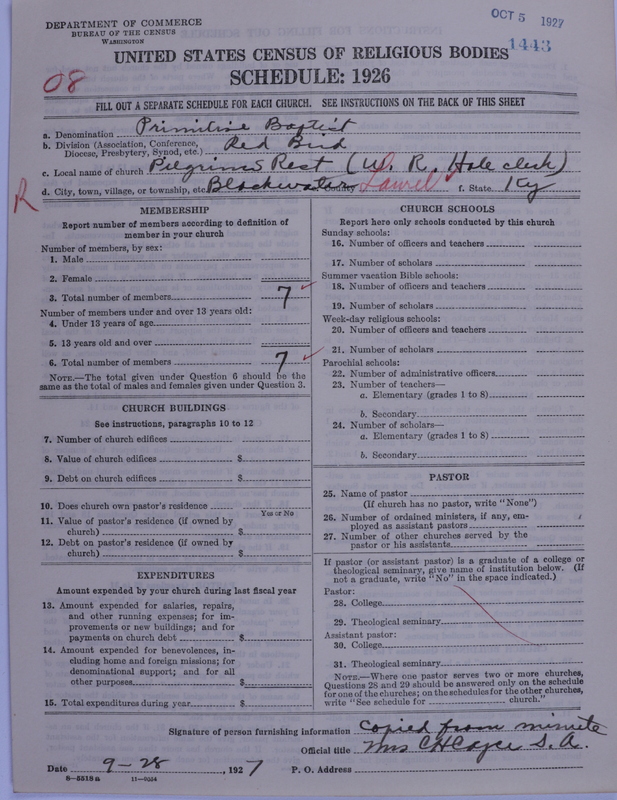 DEPARTMENT OF COMMERCE
BUREAU OF THE CENSUS
WASHINGTON
OCT 5 1927
1443
UNITED STATES CENSUS OF RELIGIOUS BODIES
SCHEDULE: 1926
08
FILL OUT A SEPARATE SCHEDULE FOR EACH CHURCH. SEE INSTRUCTIONS ON THE BACK OF THIS SHEET
a. Denomination Primitive Baptist
b. Division (Association, Conference, Diocese, Presbytery, Synod, etc.) Red Bird
c. Local name of church Pilgrims Rest (W. R. Hale clerk)
R
d. City, town, village, or township, etc. Blackwater Laurel f. State Ky
MEMBERSHIP
Report number of members according to definition of
member in your church
Number of members, by sex:
1. Male
2. Female
3. Total number of members 7
Number of members under and over 13 years old:
4. Under 13 years of age
5. 13 years old and over
6. Total number of members 7
NOTE.—The total given under Question 6 should be the
same as the total of males and females given under Question 3.
CHURCH BUILDINGS
See instructions, paragraphs 10 to 12
7. Number of church edifices
8. Value of church edifices $
9. Debt on church edifices $
10. Does church own pastor's residence
Yes or No
11. Value of pastor's residence (if owned by
church) $
12. Debt on pastor's residence (if owned by
church) $
EXPENDITURES
Amount expended by your church during last fiscal year
13. Amount expended for salaries, repairs,
and other running expenses; for im-
provements or new buildings; and for
payments on church debt $
14. Amount expended for benevolences, in-
cluding home and foreign missions; for
denominational support; and for all
other purposes $
15. Total expenditures during year $
CHURCH SCHOOLS
Report here only schools conducted by this church
Sunday schools:
16. Number of officers and teachers
17. Number of scholars
Summer vacation Bible schools:
18. Number of officers and teachers
19. Number of scholars
Week-day religious schools:
20. Number of officers and teachers
21. Number of scholars
Parochial schools:
22. Number of administrative officers
23. Number of teachers—
a. Elementary (grades 1 to 8)
b. Secondary
24. Number of scholars—
a. Elementary (grades 1 to 8)
b. Secondary
PASTOR
25. Name of pastor
(If church has no pastor, write "None")
26. Number of ordained ministers, if any, em-
ployed as assistant pastors
27. Number of other churches served by the
pastor or his assistants
If pastor (or assistant pastor) is a graduate of a college or
theological seminary, give name of institution below. (If
not a graduate, write "No" in the space indicated.)
Pastor:
28. College
29. Theological seminary
Assistant pastor:
30. College
31. Theological seminary
NOTE.—Where one pastor serves two or more churches,
Questions 28 and 29 should be answered only on the schedule
for one of the churches; on the schedules for the other churches,
write "See schedule for church."
Signature of person furnishing information Copied from minute
Official title Mrs C H Cayce S. A.
Date 9-28, 1927 P. O. Address
8-5518a 11-9034